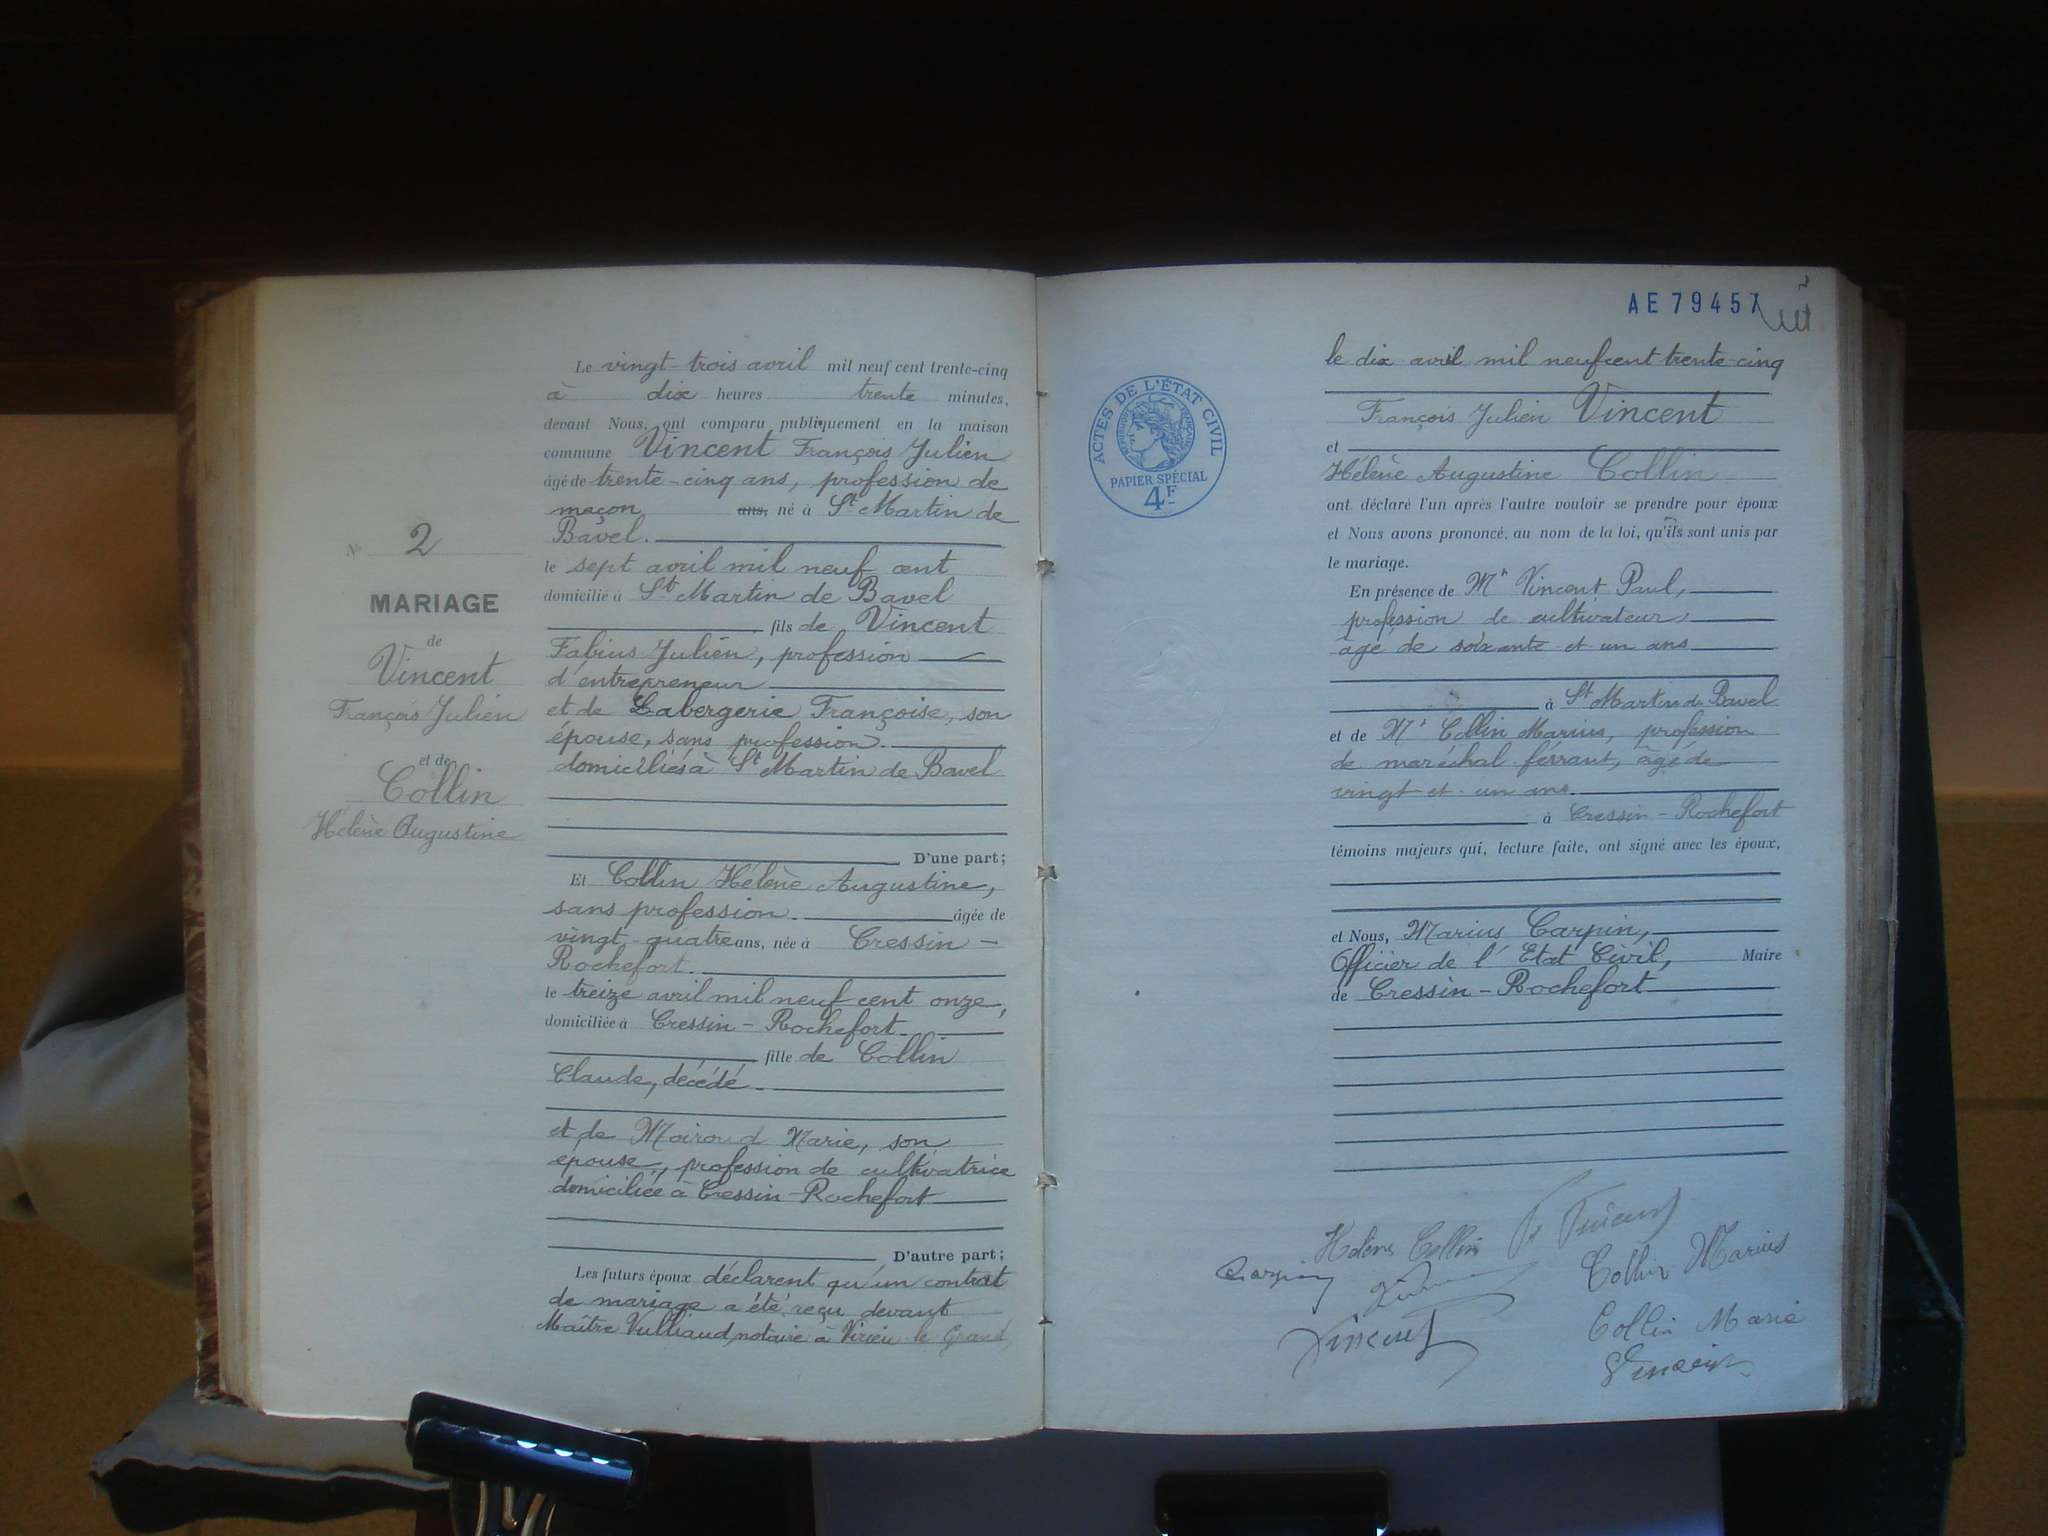 N° 2
MARIAGE
de
Vincent
François Julien
et de
Collin
Hélène Augustine
Le vingt-trois avril mil neuf cent trente-cinq
à dix heures trente minutes,
devant Nous, ont comparu publiquement en la maison
commune Vincent François Julien
âgé de trente-cinq ans, profession de
maçon ans, né à St Martin de
Bavel.
le sept avril mil neuf cent
domicilié à St Martin de Bavel
fils de Vincent
Fabius Julien, profession
d'entrepreneur
et de Labergerie Françoise, son
épouse, sans profession.
domiciliés à St Martin de Bavel
D'une part;
Et Collin Hélène Augustine,
sans profession. âgée de
vingt-quatre ans, née à Cressin-
Rochefort.
le treize avril mil neuf cent onze,
domiciliée à Cressin-Rochefort
fille de Collin
Claude, décédé
et de Moiroud Marie, son
épouse, profession de cultivatrice
domiciliée à Cressin-Rochefort
D'autre part;
Les futurs époux déclarent qu'un contrat
de mariage a été reçu devant
Maître Vulliaud, notaire à Virieu-le-Grand,
AE 79457
ACTES DE L'ÉTAT CIVIL
RÉPUBLIQUE FRANÇAISE
PAPIER SPÉCIAL
4F
le dix avril mil neuf cent trente-cinq
François Julien Vincent
et
Hélène Augustine Collin
ont déclaré l'un après l'autre vouloir se prendre pour époux
et Nous avons prononcé, au nom de la loi, qu'ils sont unis par
le mariage.
En présence de Mr Vincent Paul,
profession de cultivateur
âgé de soixante et un ans
à St Martin de Bavel
et de Mr Collin Marius, profession
de maréchal-ferrant, âgé de
vingt-et-un ans.
à Cressin-Rochefort
témoins majeurs qui, lecture faite, ont signé avec les époux,
et Nous, Marius Carpin,
Officier de l'Etat Civil, Maire
de Cressin-Rochefort
Hélène Collin
Carpin
Collin Marius
Vincent
Collin Marie